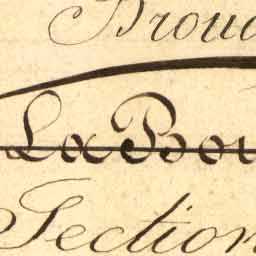 Brou
La Bou
Section